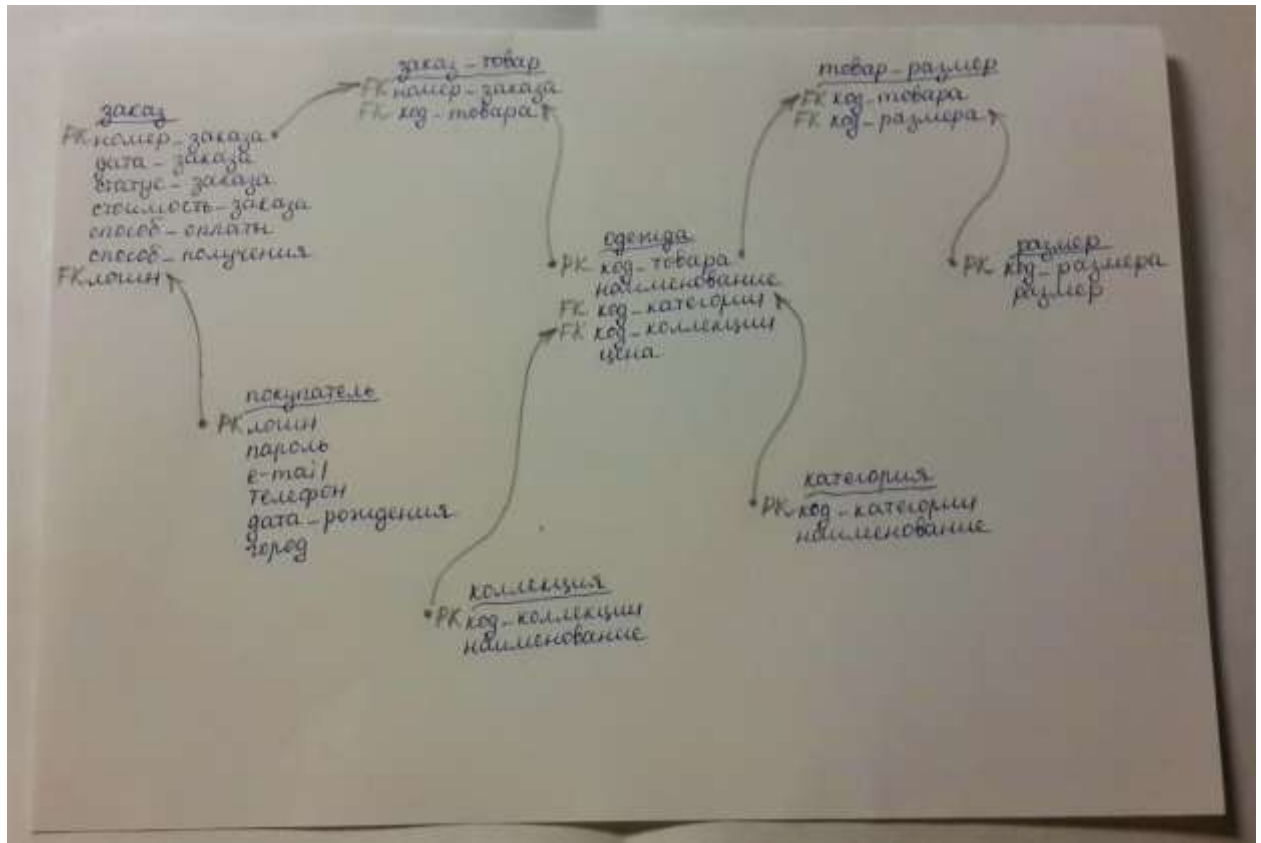 заказ
PK номер_заказа
дата_заказа
статус_заказа
стоимость_заказа
способ_оплаты
способ_получения
FK логин
заказ_товар
FK номер_заказа
FK код_товара
товар_размер
FK код_товара
FK код_размера
одежда
PK код_товара
наименование
FK код_категории
FK код_коллекции
цена
размер
PK код_размера
размер
покупатель
PK логин
пароль
e-mail
телефон
дата_рождения
город
категория
PK код_категории
наименование
коллекция
PK код_коллекции
наименование